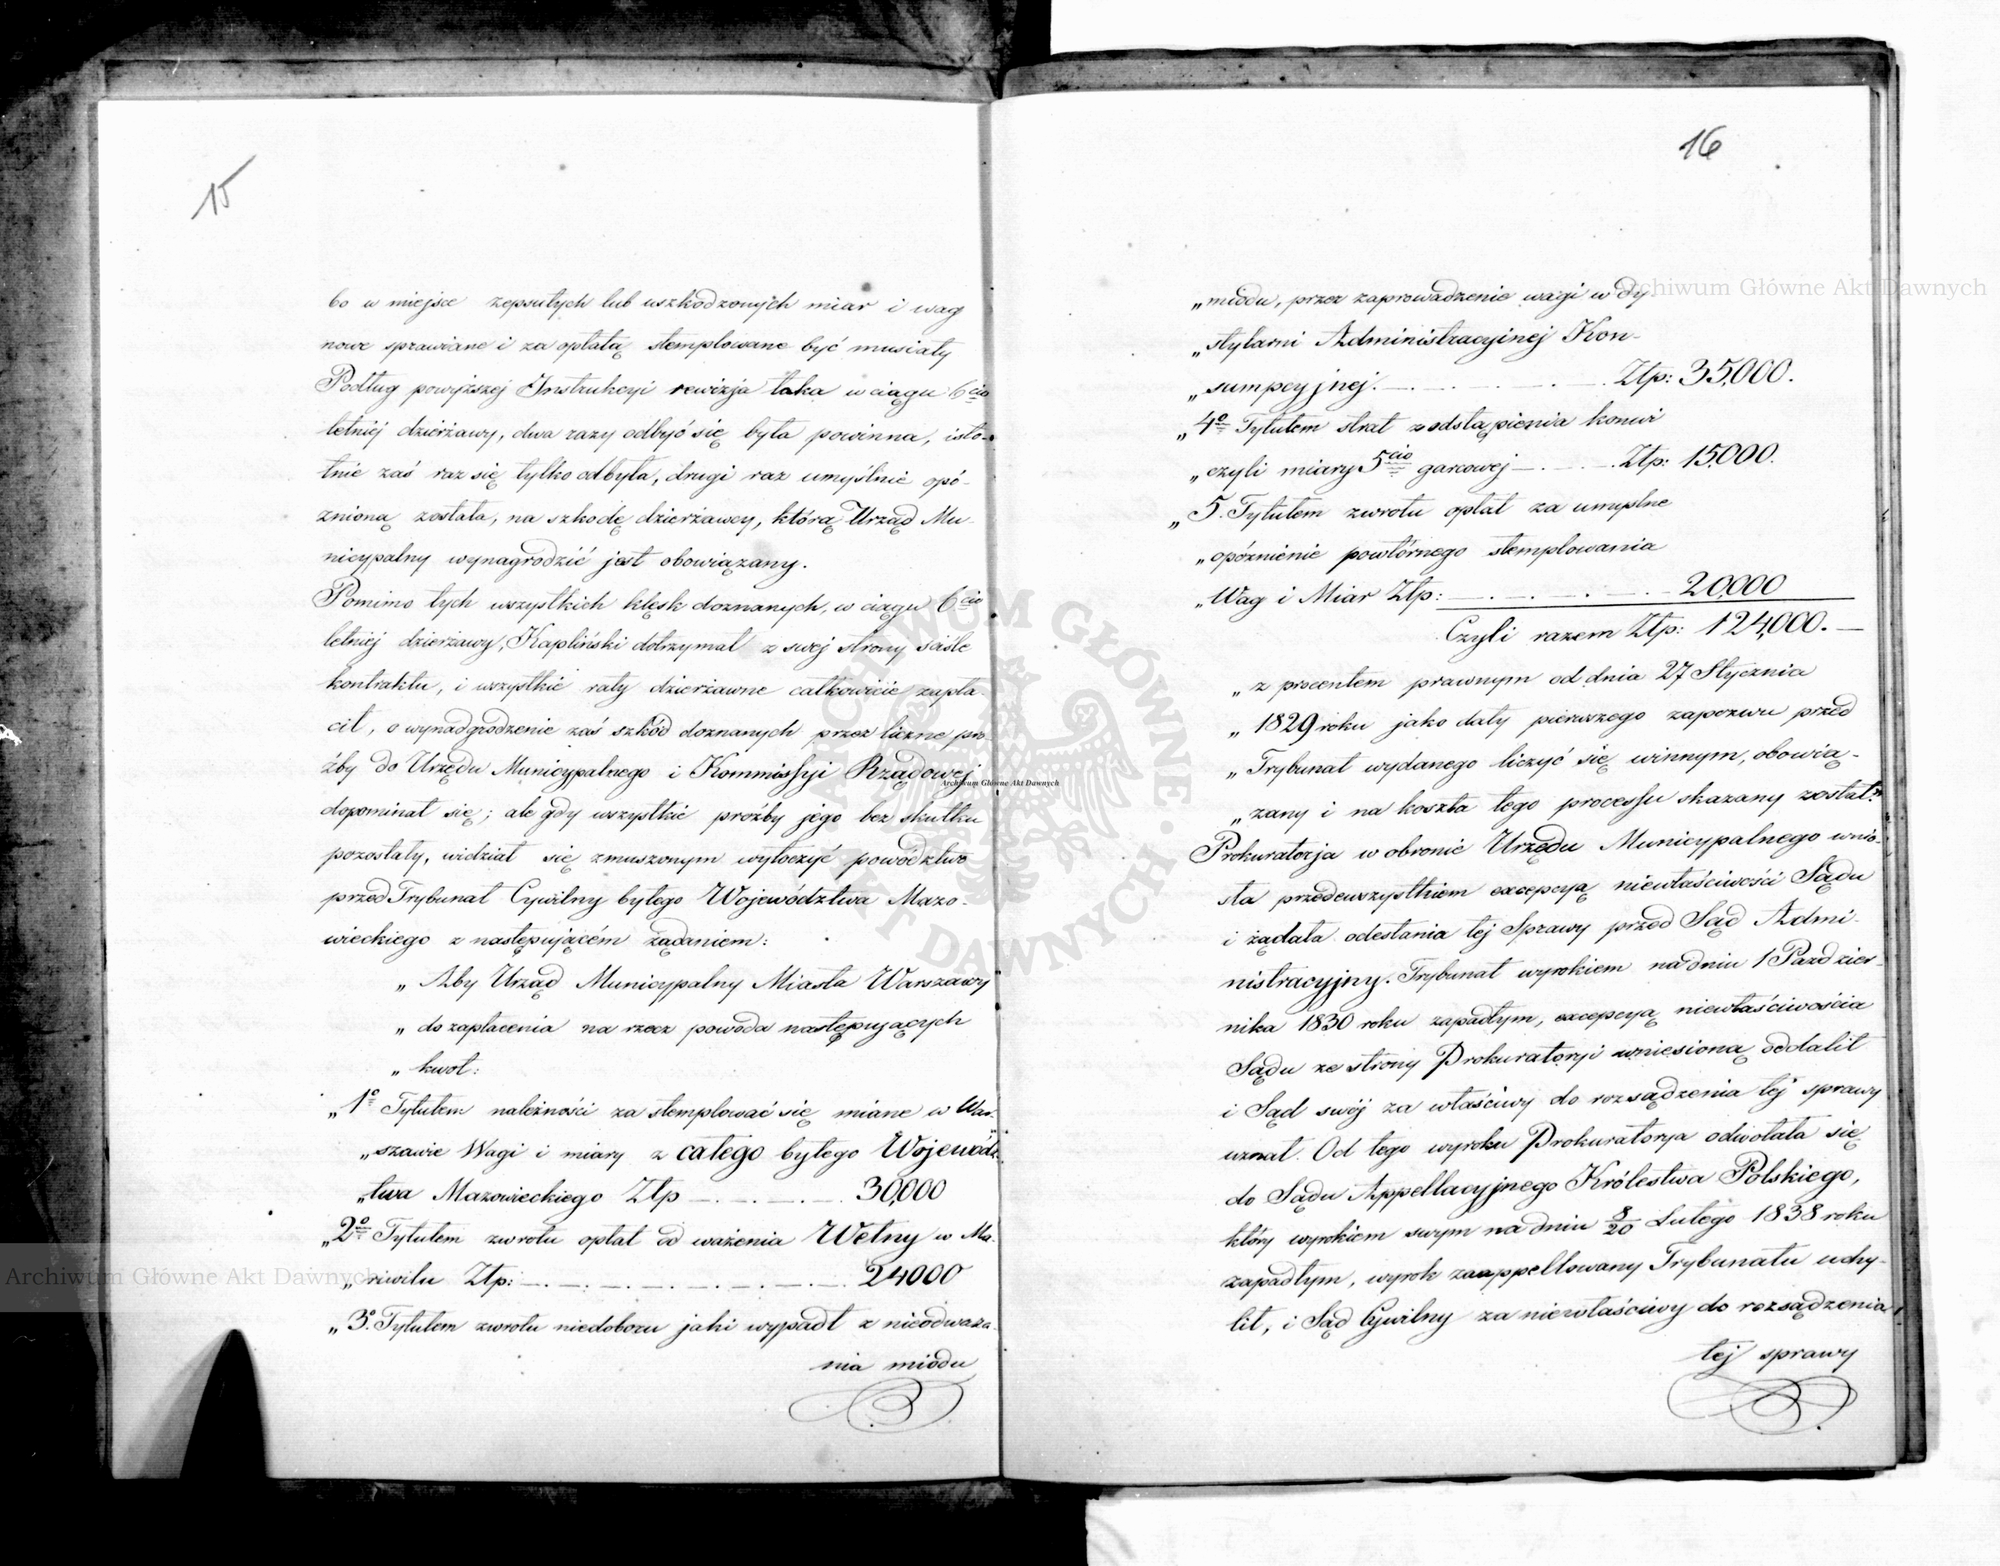 15
bo w miejsce zepsutych lub uszkodzonych miar i wag
nowe sprawiane i za opłatą stemplowane być musiały
Podług powyższej Instrukcyi rewizja taka w ciągu 6cio
letniej dzierżawy, dwa razy odbyć się była powinna, isto-
tnie zaś raz się tylko odbyła, drugi raz umyślnie opó-
znioną została, na szkodę dzierżawcy, którą Urząd Mu-
nicypalny wynagrodzić jest obowiązany.
Pomimo tych wszystkich klęsk doznanych, w ciągu 6cio
letniej dzierżawy, Kapliński dotrzymał z swej strony ściśle
kontraktu, i wszystkie raty dzierżawne całkowicie zapła-
cił, o wynadgrodzenie zaś szkód doznanych przez liczne pro-
źby do Urzędu Municypalnego i Kommissyi Rządowej
dopominał się; ale gdy wszystkie prośby jego bez skutku
pozostały, widział się zmuszonym wytoczyć powództwo
przed Trybunał Cywilny byłego Województwa Mazo-
wieckiego z następującém żądaniem:
„Aby Urząd Municypalny Miasta Warszawy
„do zapłacenia na rzecz powoda następujących
„kwot:
„1o Tytułem należności za stemplować się miane w War-
„szawie Wagi i miary z całego byłego Wojewódz-
„twa Mazowieckiego Złp 30,000
„2o Tytułem zwrotu opłat od ważenia Wełny w Ma-
„riwilu Złp: 24,000
„3o Tytułem zwrotu niedoboru jaki wypadł z nieodważa-
nia miodu
16
„miodu, przez zaprowadzenie wagi w dy-
„stylarni Administracyjnej Kon-
„sumpcyjnej. Złp: 35,000.
„4o Tytułem strat z odstąpienia konwi
„czyli miary 5cio garcowej Złp: 15,000.
„5. Tytułem zwrotu opłat za umyślne
„opóznienie powtórnego stemplowania
„Wag i Miar Złp: 20,000
Czyli razem Złp: 124,000.
„z procentem prawnym od dnia 27 Stycznia
„1829 roku jako daty pierwszego zapozwu przed
„Trybunał wydanego liczyć się winnym, obowią-
„zany i na koszta tego processu skazany został."
Prokuratorja w obronie Urzędu Municypalnego wnio-
sła przedewszystkiem excepcyą niewłaściwości Sądu
i żądała odesłania tej Sprawy przed Sąd Admi-
nistracyjny. Trybunał wyrokiem na dniu 1 Paździer-
nika 1830 roku zapadłym, excepcyą niewłaściwościa
Sądu ze strony Prokuratoryi wniesioną oddalił
i Sąd swój za właściwy do rozsądzenia tej sprawy
uznał. Od tego wyroku Prokuratorya odwołała się
do Sądu Appellacyjnego Królestwa Polskiego,
który wyrokiem swym na dniu 8/20 Lutego 1838 roku
zapadłym, wyrok zaappellowany Trybunału uchy-
lił, i Sąd Cywilny za niewłaściwy do rozsądzenia
tej sprawy
Archiwum Główne Akt Dawnych
Archiwum Główne Akt Dawnych
Archiwum Główne Akt Dawnych
ARCHIWUM GŁÓWNE AKT DAWNYCH